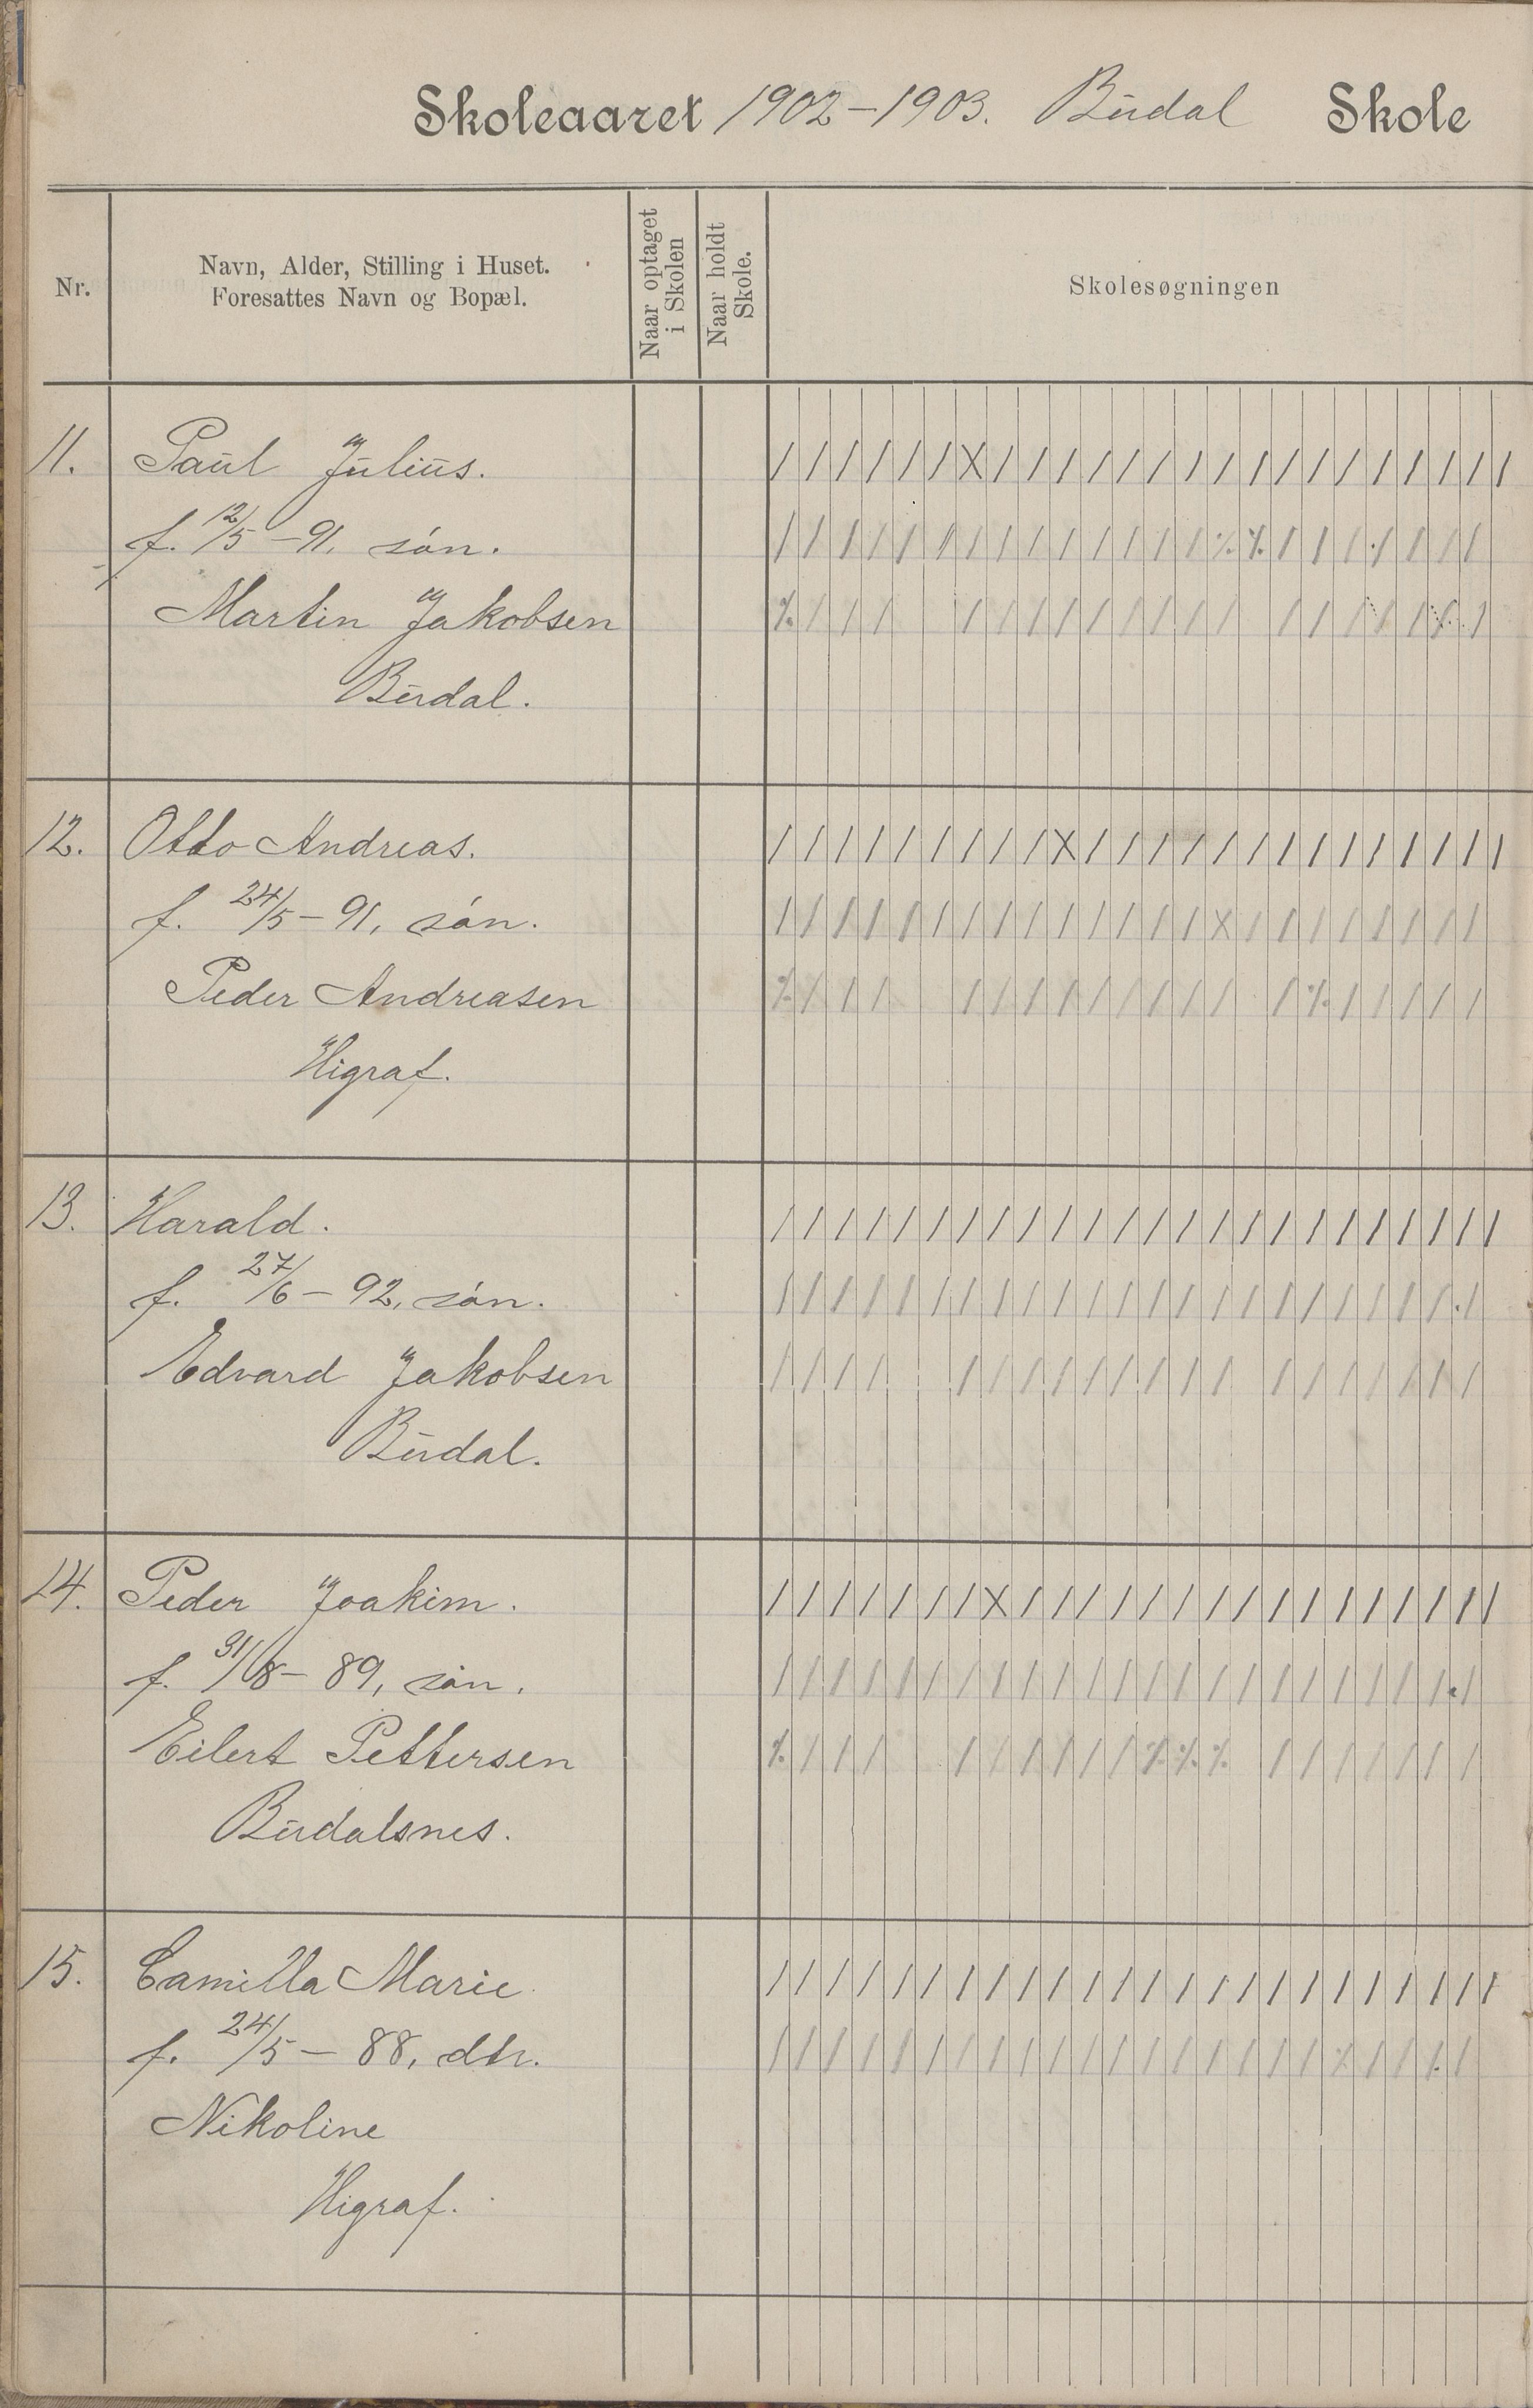 Skoleaaret 1902-1903. Burdal Skole
Nr.
Navn, Alder, Stilling i Huset.
Foresattes Navn og Bopæl.
Naar optaget
i Skolen
Naar holdt
Skole.
Skolesøgningen
11. Paul Julius.
f. 12/5-91. søn.
Martin Jakobsen
Burdal.
12. Otto Andreas.
f. 24/5-91, søn.
Peder Andreasen
Higraf.
13. Harald.
f. 27/6-92, søn.
Edvard Jakobsen
Burdal.
14. Peder Joakim.
f. 31/8-89, søn.
Eilert Pettersen
Burdalsnes.
15. Camilla Marie
f. 24/5-88, dtr.
Nikoline
Higraf.